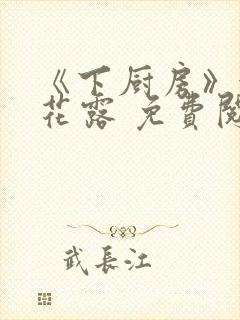 《下厨房》
花露 免費閱
武長江